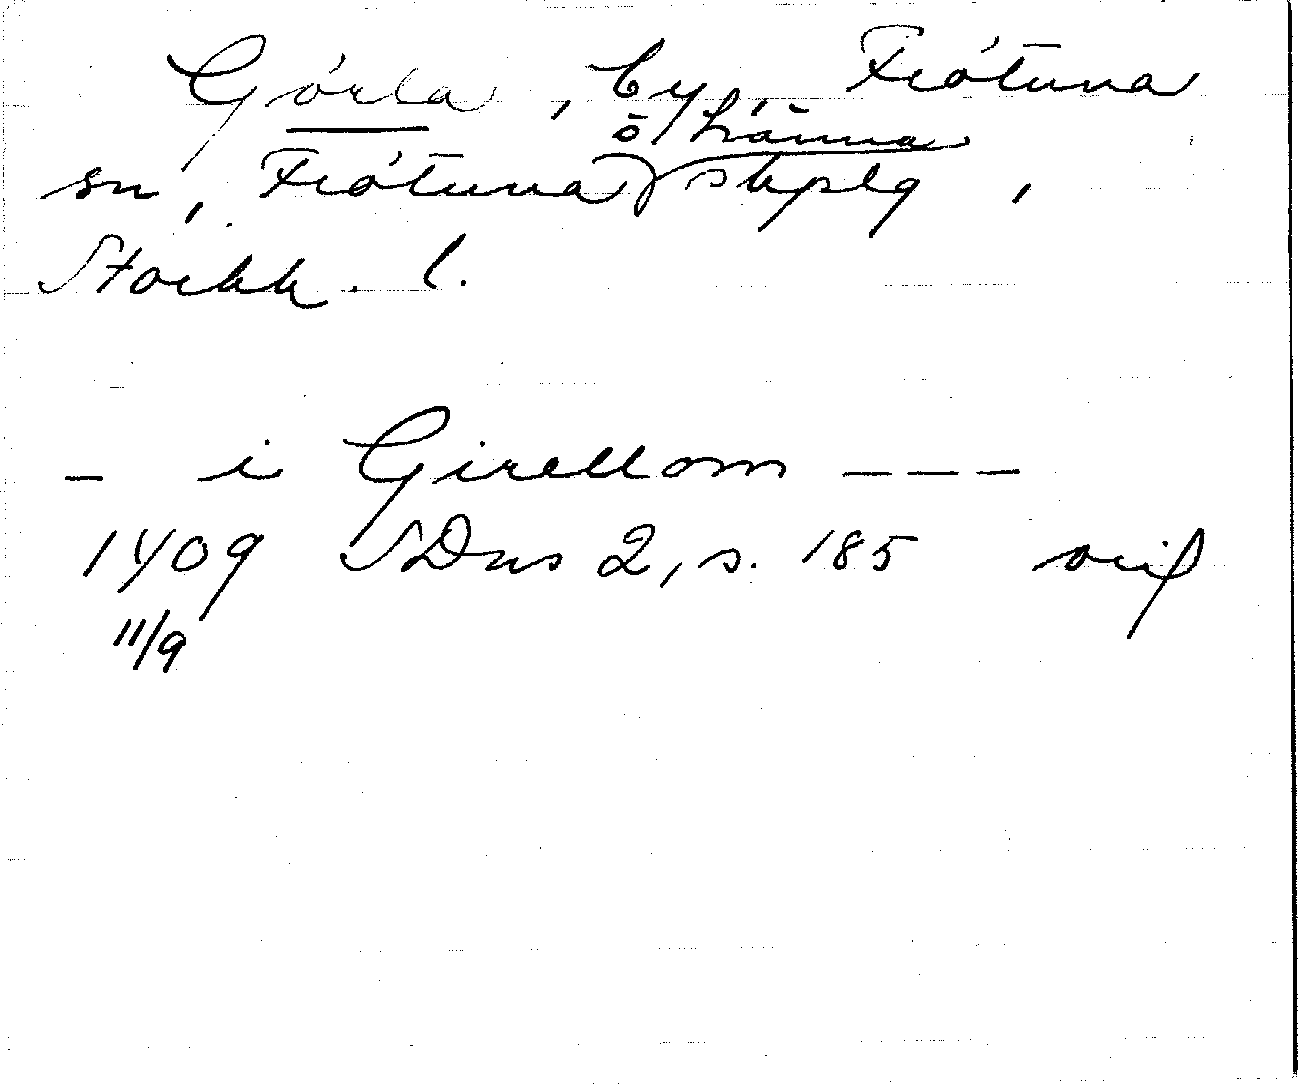 Görla, by, Frötuna
sn, Frötuna o Länna skplg,
Stockh. l.
- i Girellom - - -
1409 SDns 2, s. 185 orig
11/9